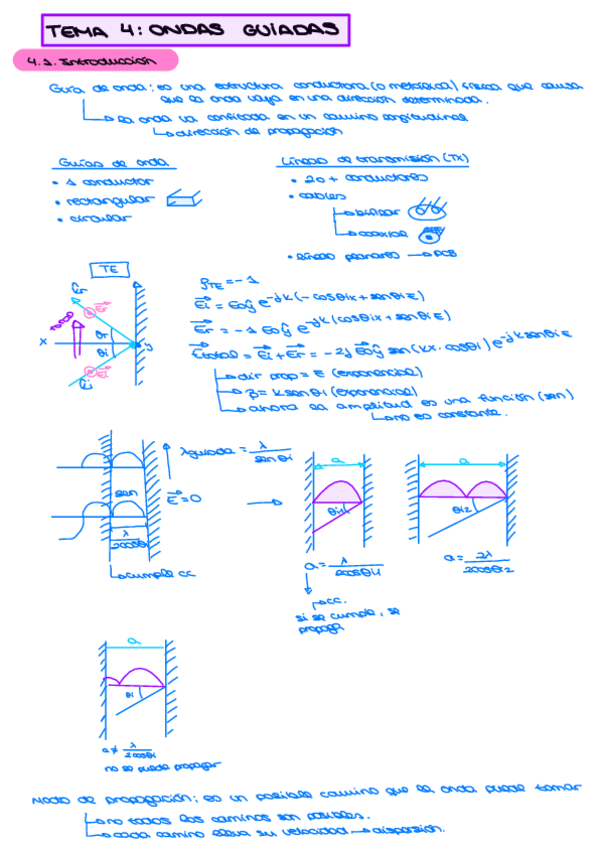 TEMA 4: ONDAS GUIADAS
4.1. Introducción
Guía de onda: es una estructura conductora (o metálica) física que causa
que la onda vaya en una dirección determinada.
la onda va confinada en un camino longitudinal
dirección de propagación
Guías de onda
• 1 conductor
• rectangular
• circular
Líneas de transmisión (TX)
• 2 o + conductores
• cables
bifilar
coaxial
• líneas planares → PCB
TE
Er
Er
x
θr
θi
y
Ei
Ei
ρTE = -1
Ei = Eo ŷ e^-jk(-cosθi x + senθi z)
Er = -1 Eo ŷ e^-jk(cosθi x + senθi z)
Etotal = Ei + Er = -2j Eo ŷ sen(kx · cosθi) e^-jk senθi z
dir prop = z (exponencial)
β = k senθi (exponencial)
ahora la amplitud es una función (sen)
no es constante.
λguiada = λ / senθi
sen
E = 0
λ / 2cosθi
cumple CC
a
θi1
a = λ / 2cosθi1
CC.
si se cumple, se
propaga
a
θi2
a = 2λ / 2cosθi2
a
θi
a ≠ λ / 2cosθi
no se puede propagar
Modo de propagación: es un posible camino que la onda puede tomar
no todos los caminos son posibles.
cada camino lleva su velocidad → dispersión.